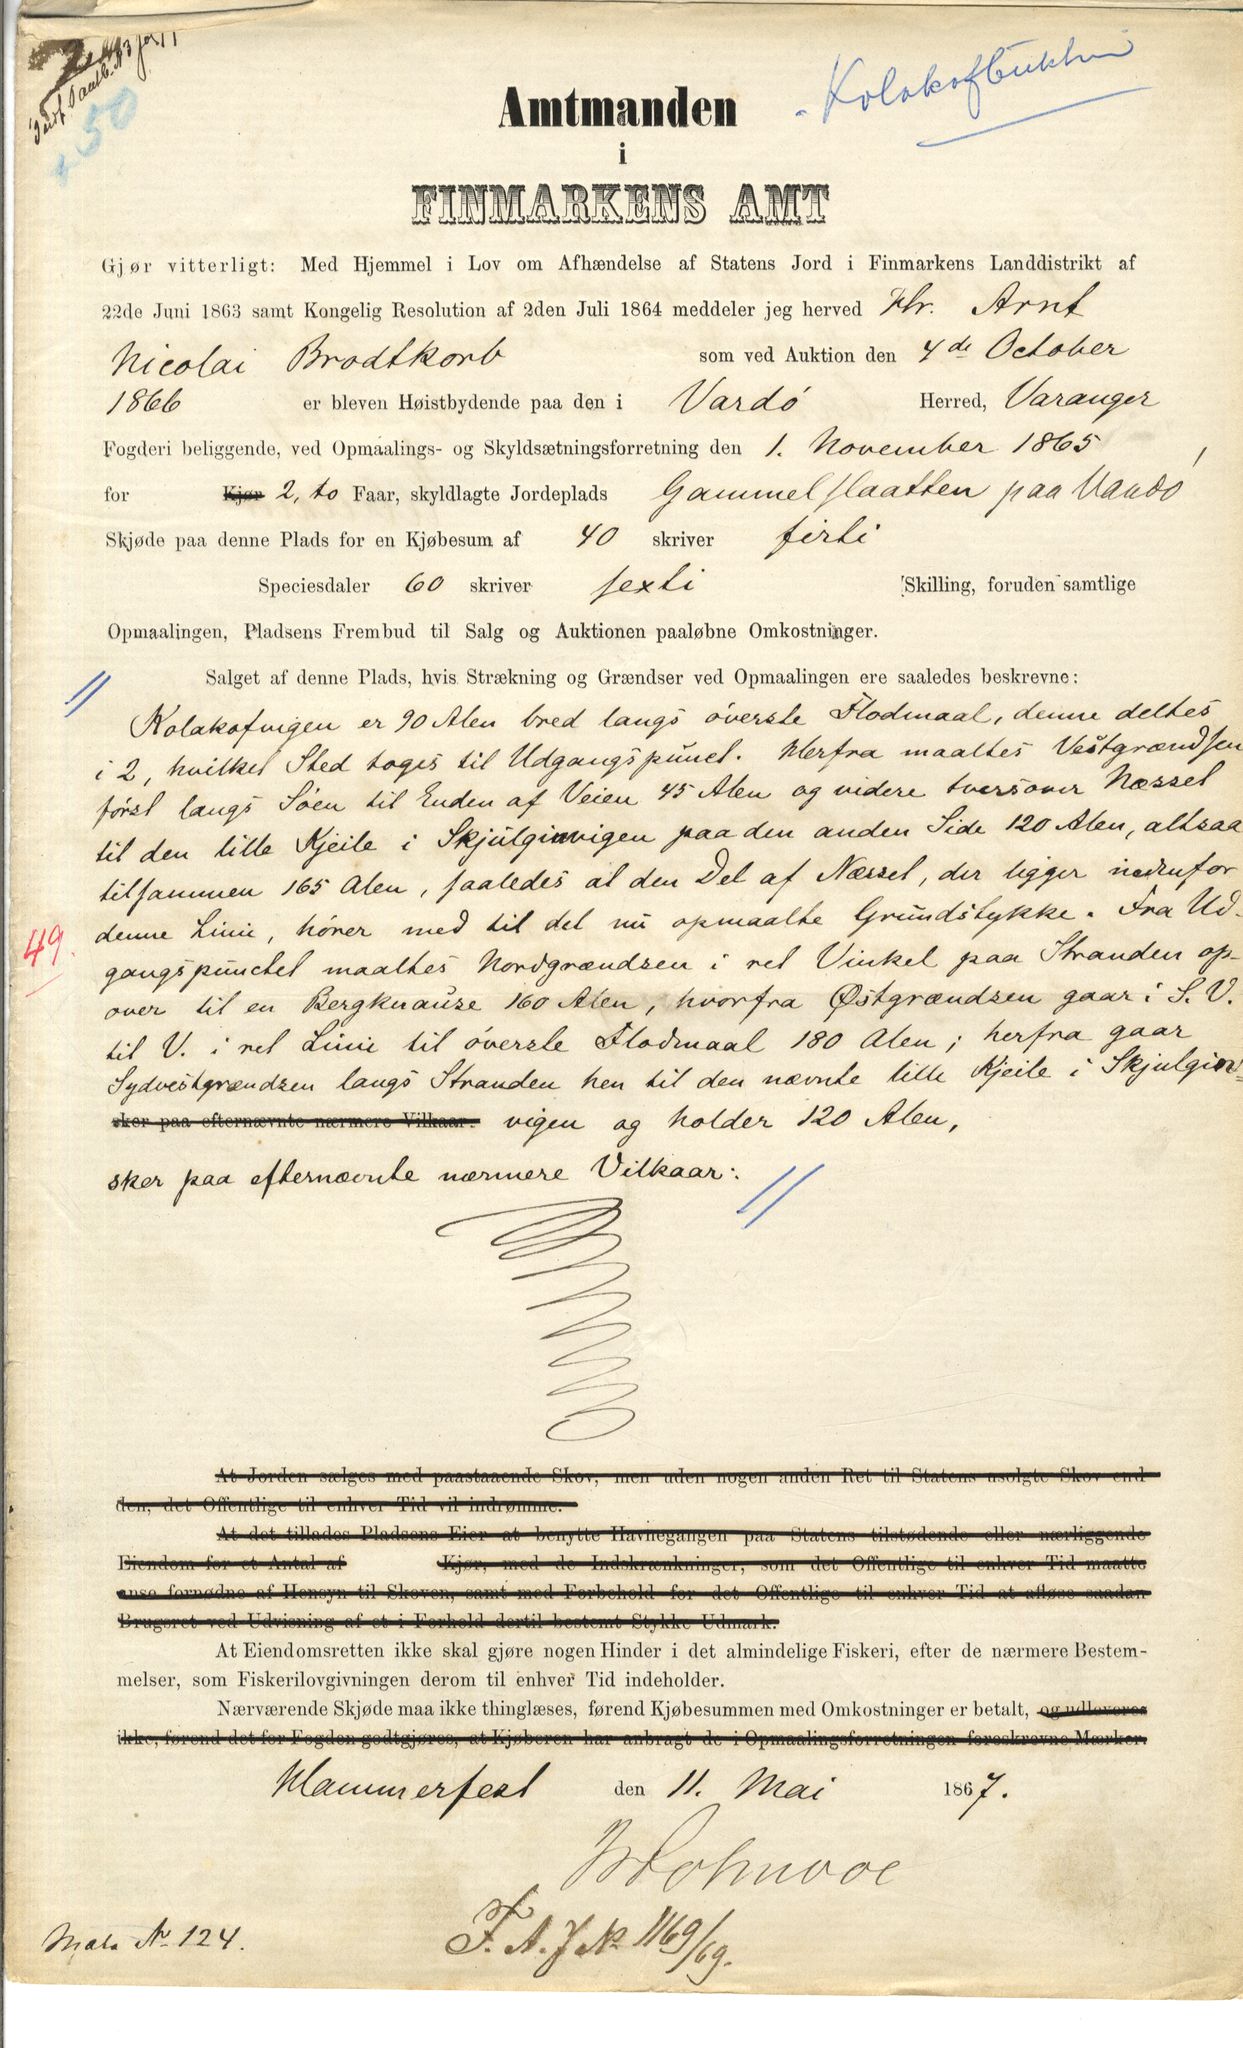 Kolakofbukten
50
Amtmanden
i
FINMARKENS AMT
Gjør vitterligt: Med Hjemmel i Lov om Afhændelse af Statens Jord i Finmarkens Landdistrikt af
22de Juni 1863 samt Kongelig Resolution af 2den Juli 1864 meddeler jeg herved Hr. Arnt
Nicolai Brodtkorb som ved Auktion den 4de October
1866 er bleven Høistbydende paa den i Vardó Herred, Varanger
Fogderi beliggende, ved Opmaalings- og Skyldsætningsforretning den 1. November 1865
for Kjør 2, to Faar, skyldlagte Jordeplads Gammelslaatten paa Vardó
Skjøde paa denne Plads for en Kjøbesum af 40 skriver firti
Speciesdaler 60 skriver sexti Skilling, foruden samtlige
Opmaalingen, Pladsens Frembud til Salg og Auktionen paaløbne Omkostninger.
Salget af denne Plads, hvis Strækning og Grændser ved Opmaalingen ere saaledes beskrevne:
Kolakofvigen er 90 Alen bred langs óverste Flodmaal, denne deltes
i 2, hvilket Sted toges til Udgangspunct. Herfra maaltes Vestgrændsen
fórst langs Sóen til Enden af Veien 45 Alen og videre tversover Næsset
til den lille Kjeile i Skjulginvigen paa den anden Side 120 Alen, altsaa
tilsammen 165 Alen, saaledes at den Del af Næsset, der ligger nedenfor
denne Linie, hórer med til det nu opmaalte Grundstykke. Fra Ud-
49.
gangspunctet maaltes Nordgrændsen i ret Vinkel paa Stranden op-
over til en Bergknause 160 Alen, hvorfra Østgrændsen gaar i S. V.
til V. i ret Linie til óverste Flodmaal 180 Alen; herfra gaar
Sydvestgrændsen langs Stranden hen til den nævnte lille Kjeile i Skjulgin-
sker paa efternævnte nærmere Vilkaar: vigen og holder 120 Alen,
sker paa efternævnte nærmere Vilkaar:
At Jorden sælges med paastaaende Skov, men uden nogen anden Ret til Statens usolgte Skov end
den, det Offentlige til enhver Tid vil indrømme.
At det tillades Pladsens Eier at benytte Havnegangen paa Statens tilstødende eller nærliggende
Eiendom for et Antal af Kjør, med de Indskrænkninger, som det Offentlige til enhver Tid maatte
anse fornødne af Hensyn til Skoven, samt med Forbehold for det Offentlige til enhver Tid at afløse saadan
Brugsret ved Udvisning af et i Forhold dertil bestemt Stykke Udmark.
At Eiendomsretten ikke skal gjøre nogen Hinder i det almindelige Fiskeri, efter de nærmere Bestem-
melser, som Fiskerilovgivningen derom til enhver Tid indeholder.
Nærværende Skjøde maa ikke thinglæses, førend Kjøbesummen med Omkostninger er betalt, og udleveres
ikke, førend det for Fogden godtgjøres, at Kjøberen har anbragt de i Opmaalingsforretningen foreskrevne Mærker.
Hammerfest den 11. Mai 1867.
F. A. J No 1169/69.
Matr No 124.